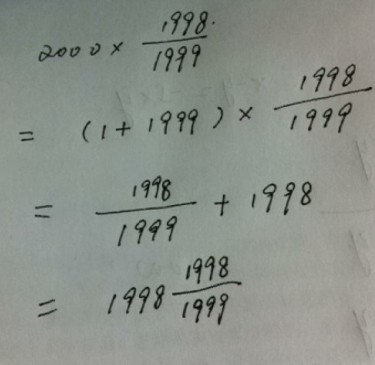 2000 × 1998/1999
= (1 + 1999) × 1998/1999
= 1998/1999 + 1998
= 1998 1998/1999